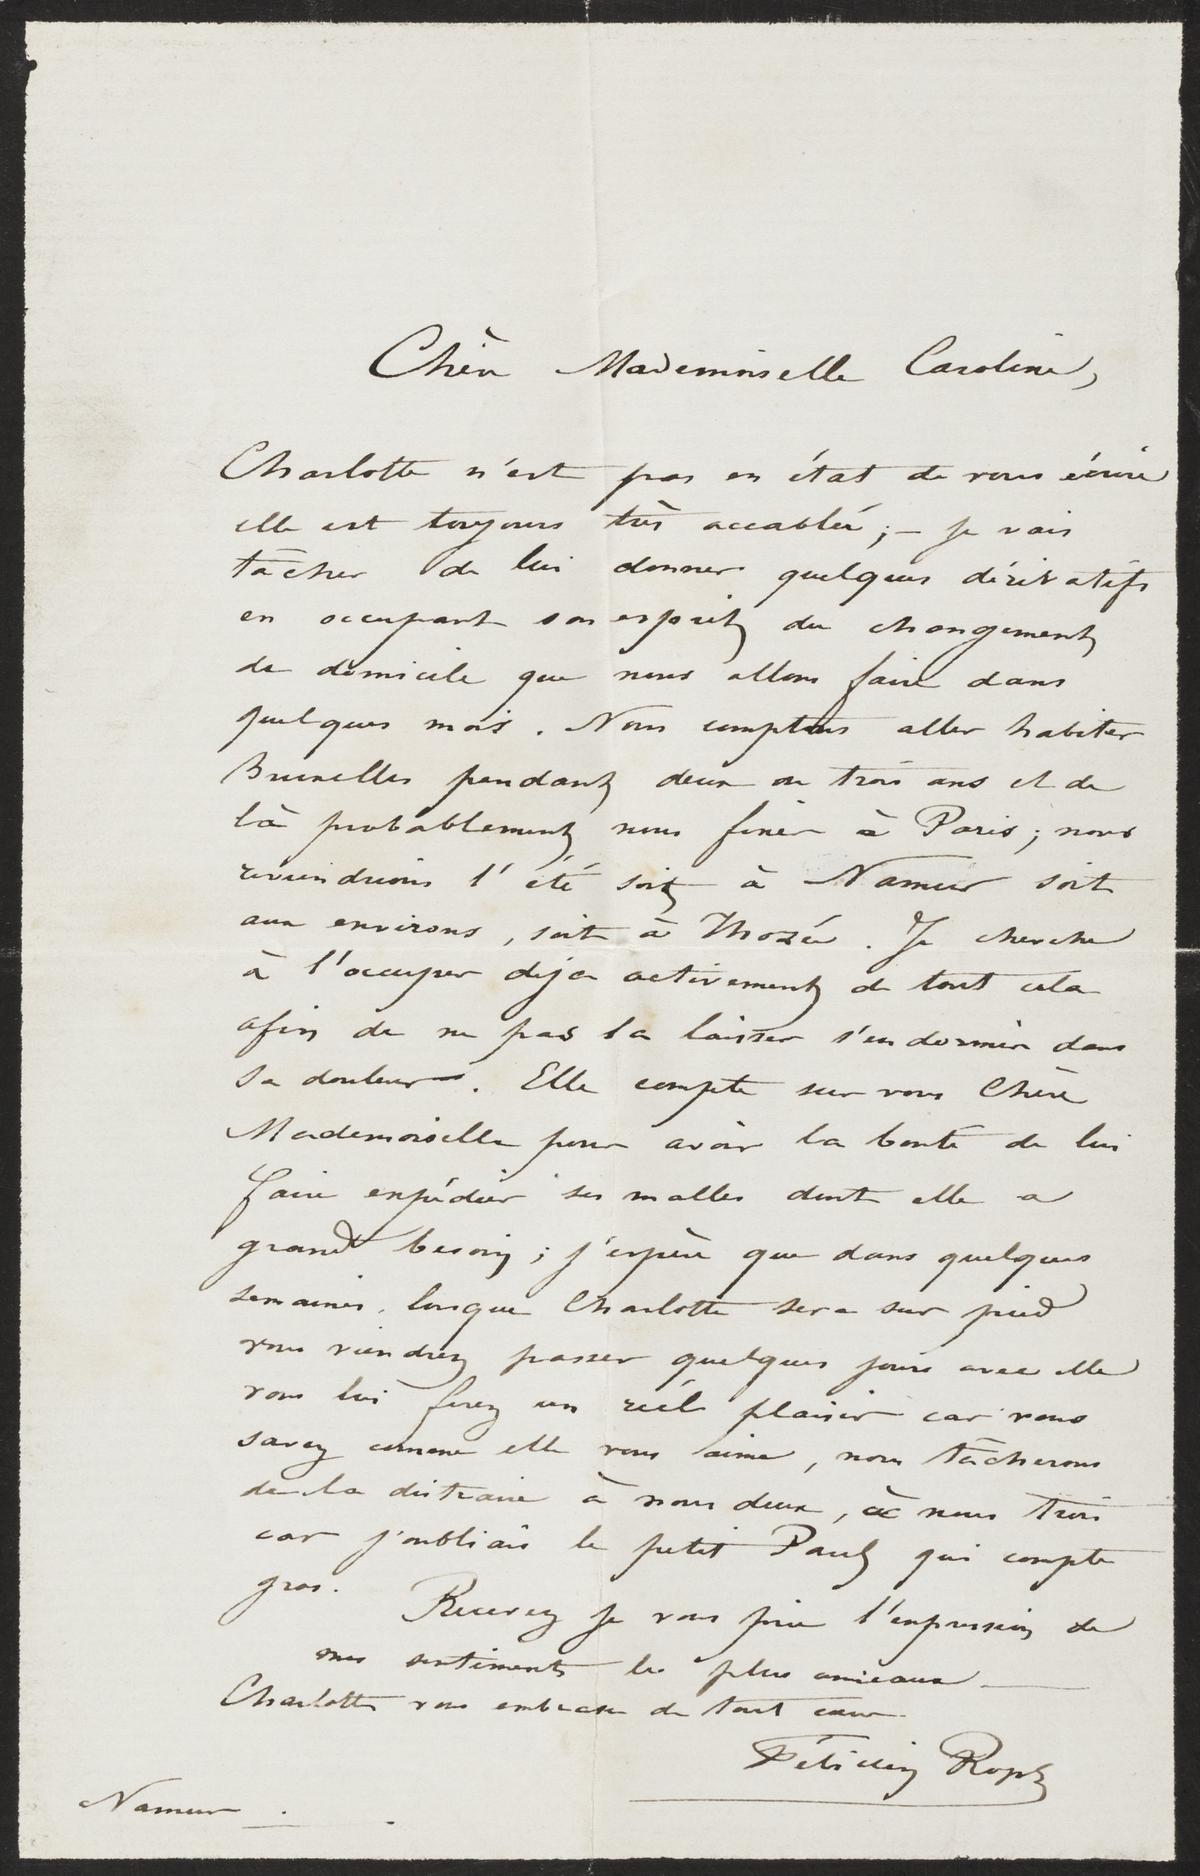 Chère Mademoiselle Caroline,
Charlotte n'est pas en état de vous écrire
elle est toujours très accablée ; – je vais
tâcher de lui donner quelques dérivatifs
en occupant son esprit du changement
de domicile que nous allons faire dans
quelques mois. Nous comptons aller habiter
Bruxelles pendant deux ou trois ans et de
là probablement nous fixer à Paris ; nous
reviendrions l'été soit à Namur soit
aux environs, soit à Thozée. Je cherche
à l'occuper déja activement de tout cela
afin de ne pas la laisser s'endormir dans
sa douleur –. Elle compte sur vous Chère
Mademoiselle pour avoir la bonté de lui
faire expédier ses malles dont elle a
grand besoin ; j'espère que dans quelques
semaines, lorsque Charlotte sera sur pied
vous viendrez passer quelques jours avec elle
vous lui ferez un réel plaisir car vous
savez comme elle vous aime, nous tâcherons
de la distraire à nous deux, à nous trois
car j'oubliais le petit Paul qui compte
gros. Recevez je vous prie l'expression de
mes sentiments les plus amicaux –
Charlotte vous embrasse de tout cœur.
Félicien Rops
Namur .